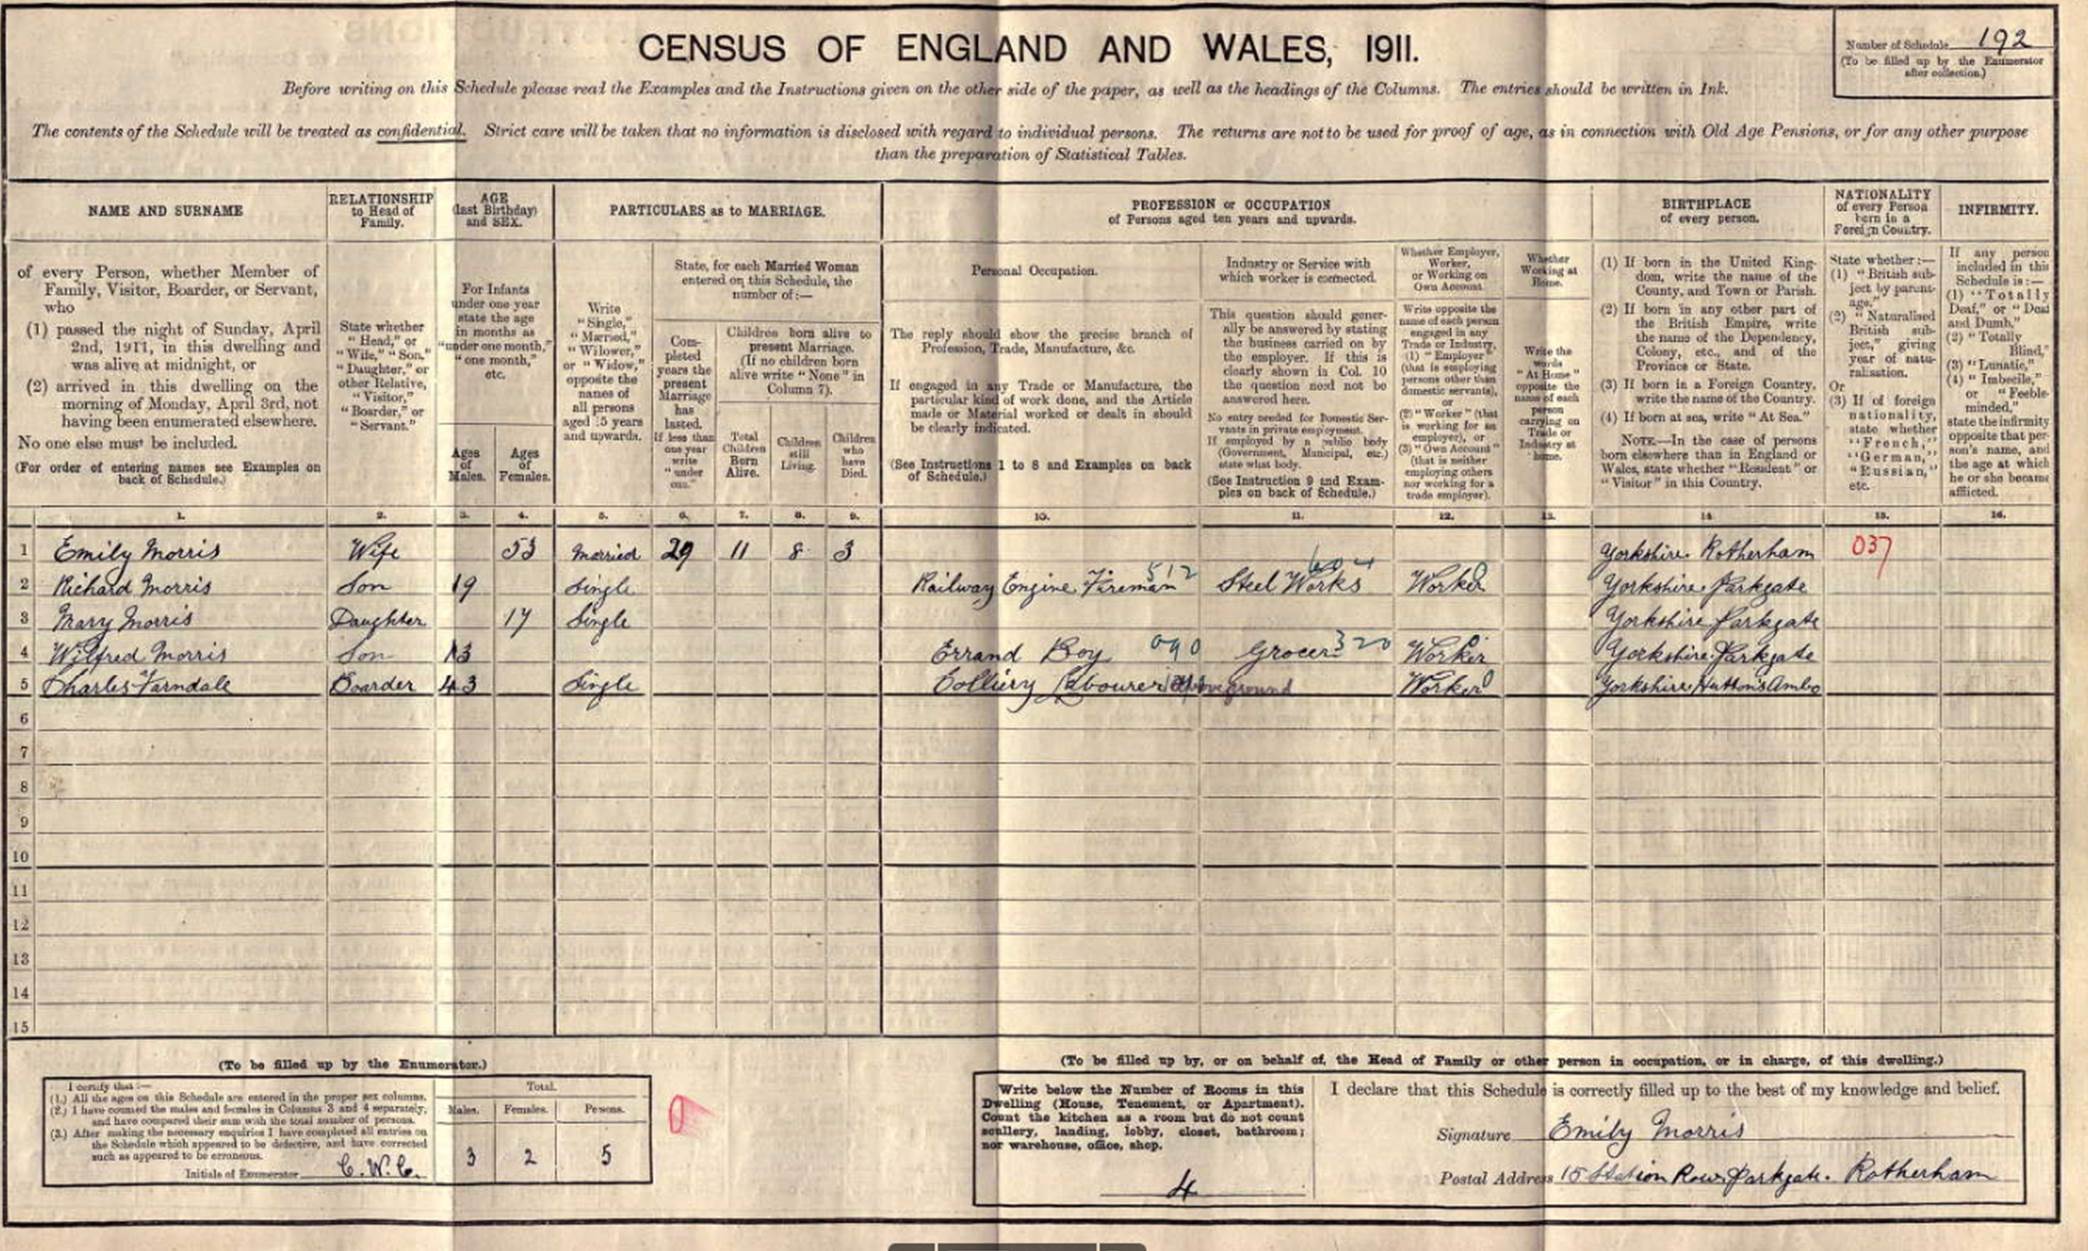 CENSUS OF ENGLAND AND WALES, 1911.
Number of Schedule 192
(To be filled up by the Enumerator
after collection.)
Before writing on this Schedule please read the Examples and the Instructions given on the other side of the paper, as well as the headings of the Columns. The entries should be written in Ink.
The contents of the Schedule will be treated as confidential. Strict care will be taken that no information is disclosed with regard to individual persons. The returns are not to be used for proof of age, as in connection with Old Age Pensions, or for any other purpose
than the preparation of Statistical Tables.
NAME AND SURNAME
RELATIONSHIP
to Head of
Family.
AGE
(last Birthday)
and SEX.
PARTICULARS as to MARRIAGE.
PROFESSION or OCCUPATION
of Persons aged ten years and upwards.
BIRTHPLACE
of every person.
NATIONALITY
of every Person
born in a
Foreign Country.
INFIRMITY.
of every Person, whether Member of
Family, Visitor, Boarder, or Servant,
who
(1) passed the night of Sunday, April
2nd, 1911, in this dwelling and
was alive at midnight, or
(2) arrived in this dwelling on the
morning of Monday, April 3rd, not
having been enumerated elsewhere.
No one else must be included.
(For order of entering names see Examples on
back of Schedule.)
State whether
"Head," or
"Wife," "Son,"
"Daughter," or
other Relative,
"Visitor,"
"Boarder," or
"Servant."
For Infants
under one year
state the age
in months as
"under one month,"
"one month,"
etc.
Ages
of
Males.
Ages
of
Females.
Write
"Single,"
"Married,"
"Widower,"
or "Widow,"
opposite the
names of
all persons
aged 15 years
and upwards.
State, for each Married Woman
entered on this Schedule, the
number of:—
Com-
pleted
years the
present
Marriage
has
lasted.
If less than
one year
write
"under
one."
Children born alive to
present Marriage.
(If no children born
alive write "None" in
Column 7).
Total
Children
Born
Alive.
Children
still
Living.
Children
who
have
Died.
Personal Occupation.
The reply should show the precise branch of
Profession, Trade, Manufacture, &c.
If engaged in any Trade or Manufacture, the
particular kind of work done, and the Article
made or Material worked or dealt in should
be clearly indicated.
(See Instructions 1 to 8 and Examples on back
of Schedule.)
Industry or Service with
which worker is connected.
This question should gener-
ally be answered by stating
the business carried on by
the employer. If this is
clearly shown in Col. 10
the question need not be
answered here.
No entry needed for Domestic Ser-
vants in private employment.
If employed by a public body
(Government, Municipal, etc.)
state what body.
(See Instruction 9 and Exam-
ples on back of Schedule.)
Whether Employer,
Worker,
or Working on
Own Account.
Write opposite the
name of each person
engaged in any
Trade or Industry,
(1) "Employer"
(that is employing
persons other than
domestic servants),
or
(2) "Worker" (that
is working for an
employer), or
(3) "Own Account"
(that is neither
employing others
nor working for a
trade employer).
Whether
Working at
Home.
Write the
words
"At Home"
opposite the
name of each
person
carrying on
Trade or
Industry at
home.
(1) If born in the United King-
dom, write the name of the
County, and Town or Parish.
(2) If born in any other part of
the British Empire, write
the name of the Dependency,
Colony, etc., and of the
Province or State.
(3) If born in a Foreign Country,
write the name of the Country.
(4) If born at sea, write "At Sea."
NOTE—In the case of persons
born elsewhere than in England or
Wales, state whether "Resident" or
"Visitor" in this Country.
State whether:—
(1) "British sub-
ject by parent-
age,"
(2) "Naturalised
British sub-
ject," giving
year of natu-
ralisation.
Or
(3) If of foreign
nationality,
state whether
"French,"
"German,"
"Russian,"
etc.
If any person
included in this
Schedule is:—
(1) "Totally
Deaf," or "Deaf
and Dumb,"
(2) "Totally
Blind,"
(3) "Lunatic,"
(4) "Imbecile,"
or "Feeble-
minded,"
state the infirmity
opposite that per-
son's name, and
the age at which
he or she became
afflicted.
1. 2. 3. 4. 5. 6. 7. 8. 9. 10. 11. 12. 13. 14. 15. 16.
1 Emily Morris Wife 53 Married 29 11 8 3 Yorkshire Rotherham 037
2 Richard Morris Son 19 Single Railway Engine Fireman 512 Steel Works Worker Yorkshire Parkgate
3 Mary Morris Daughter 17 Single Yorkshire Parkgate
4 Wilfred Morris Son 13 Errand Boy 090 Grocer 320 Worker Yorkshire Parkgate
5 Charles Farndale Boarder 43 Single Colliery Labourer above ground Worker Yorkshire Huttons Ambo
6
7
8
9
10
11
12
13
14
15
(To be filled up by the Enumerator.)
I certify that:—
(1.) All the ages on this Schedule are entered in the proper sex columns.
(2.) I have counted the males and females in Columns 3 and 4 separately,
and have compared their sum with the total number of persons.
(3.) After making the necessary enquiries I have completed all entries on
the Schedule which appeared to be defective, and have corrected
such as appeared to be erroneous.
Initials of Enumerator C.W.C.
Total.
Males. Females. Persons.
3 2 5
(To be filled up by, or on behalf of, the Head of Family or other person in occupation, or in charge, of this dwelling.)
Write below the Number of Rooms in this
Dwelling (House, Tenement, or Apartment).
Count the kitchen as a room but do not count
scullery, landing, lobby, closet, bathroom;
nor warehouse, office, shop.
4
I declare that this Schedule is correctly filled up to the best of my knowledge and belief.
Signature Emily Morris
Postal Address 15 Station Row Parkgate. Rotherham